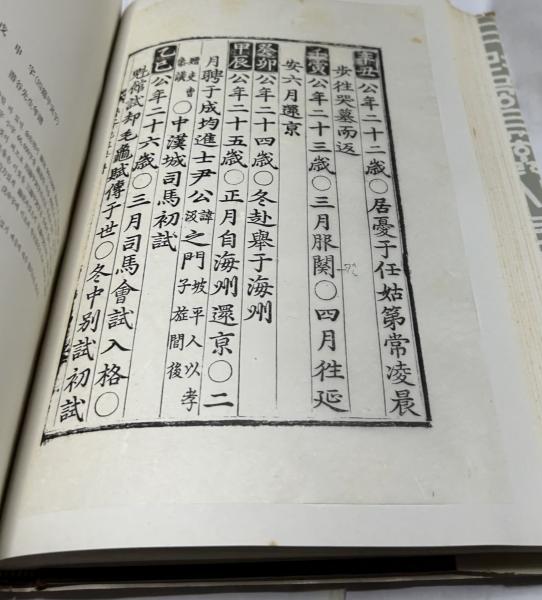 辛丑公年二十二歲〇居憂于任姑第常凌晨
步往哭墓而返
壬寅公年二十三歲〇三月服闋〇四月往延
安六月還京
癸卯公年二十四歲〇冬赴舉于海州
甲辰公年二十五歲〇正月自海州還京〇二
月聘于成均進士尹公諱汲之門坡平人以孝子旌閭後
贈吏曹參議〇中漢城司馬初試
乙巳公年二十六歲〇三月司馬會試入格〇
魁館試却毛龜賦傳于世〇冬中別試初試